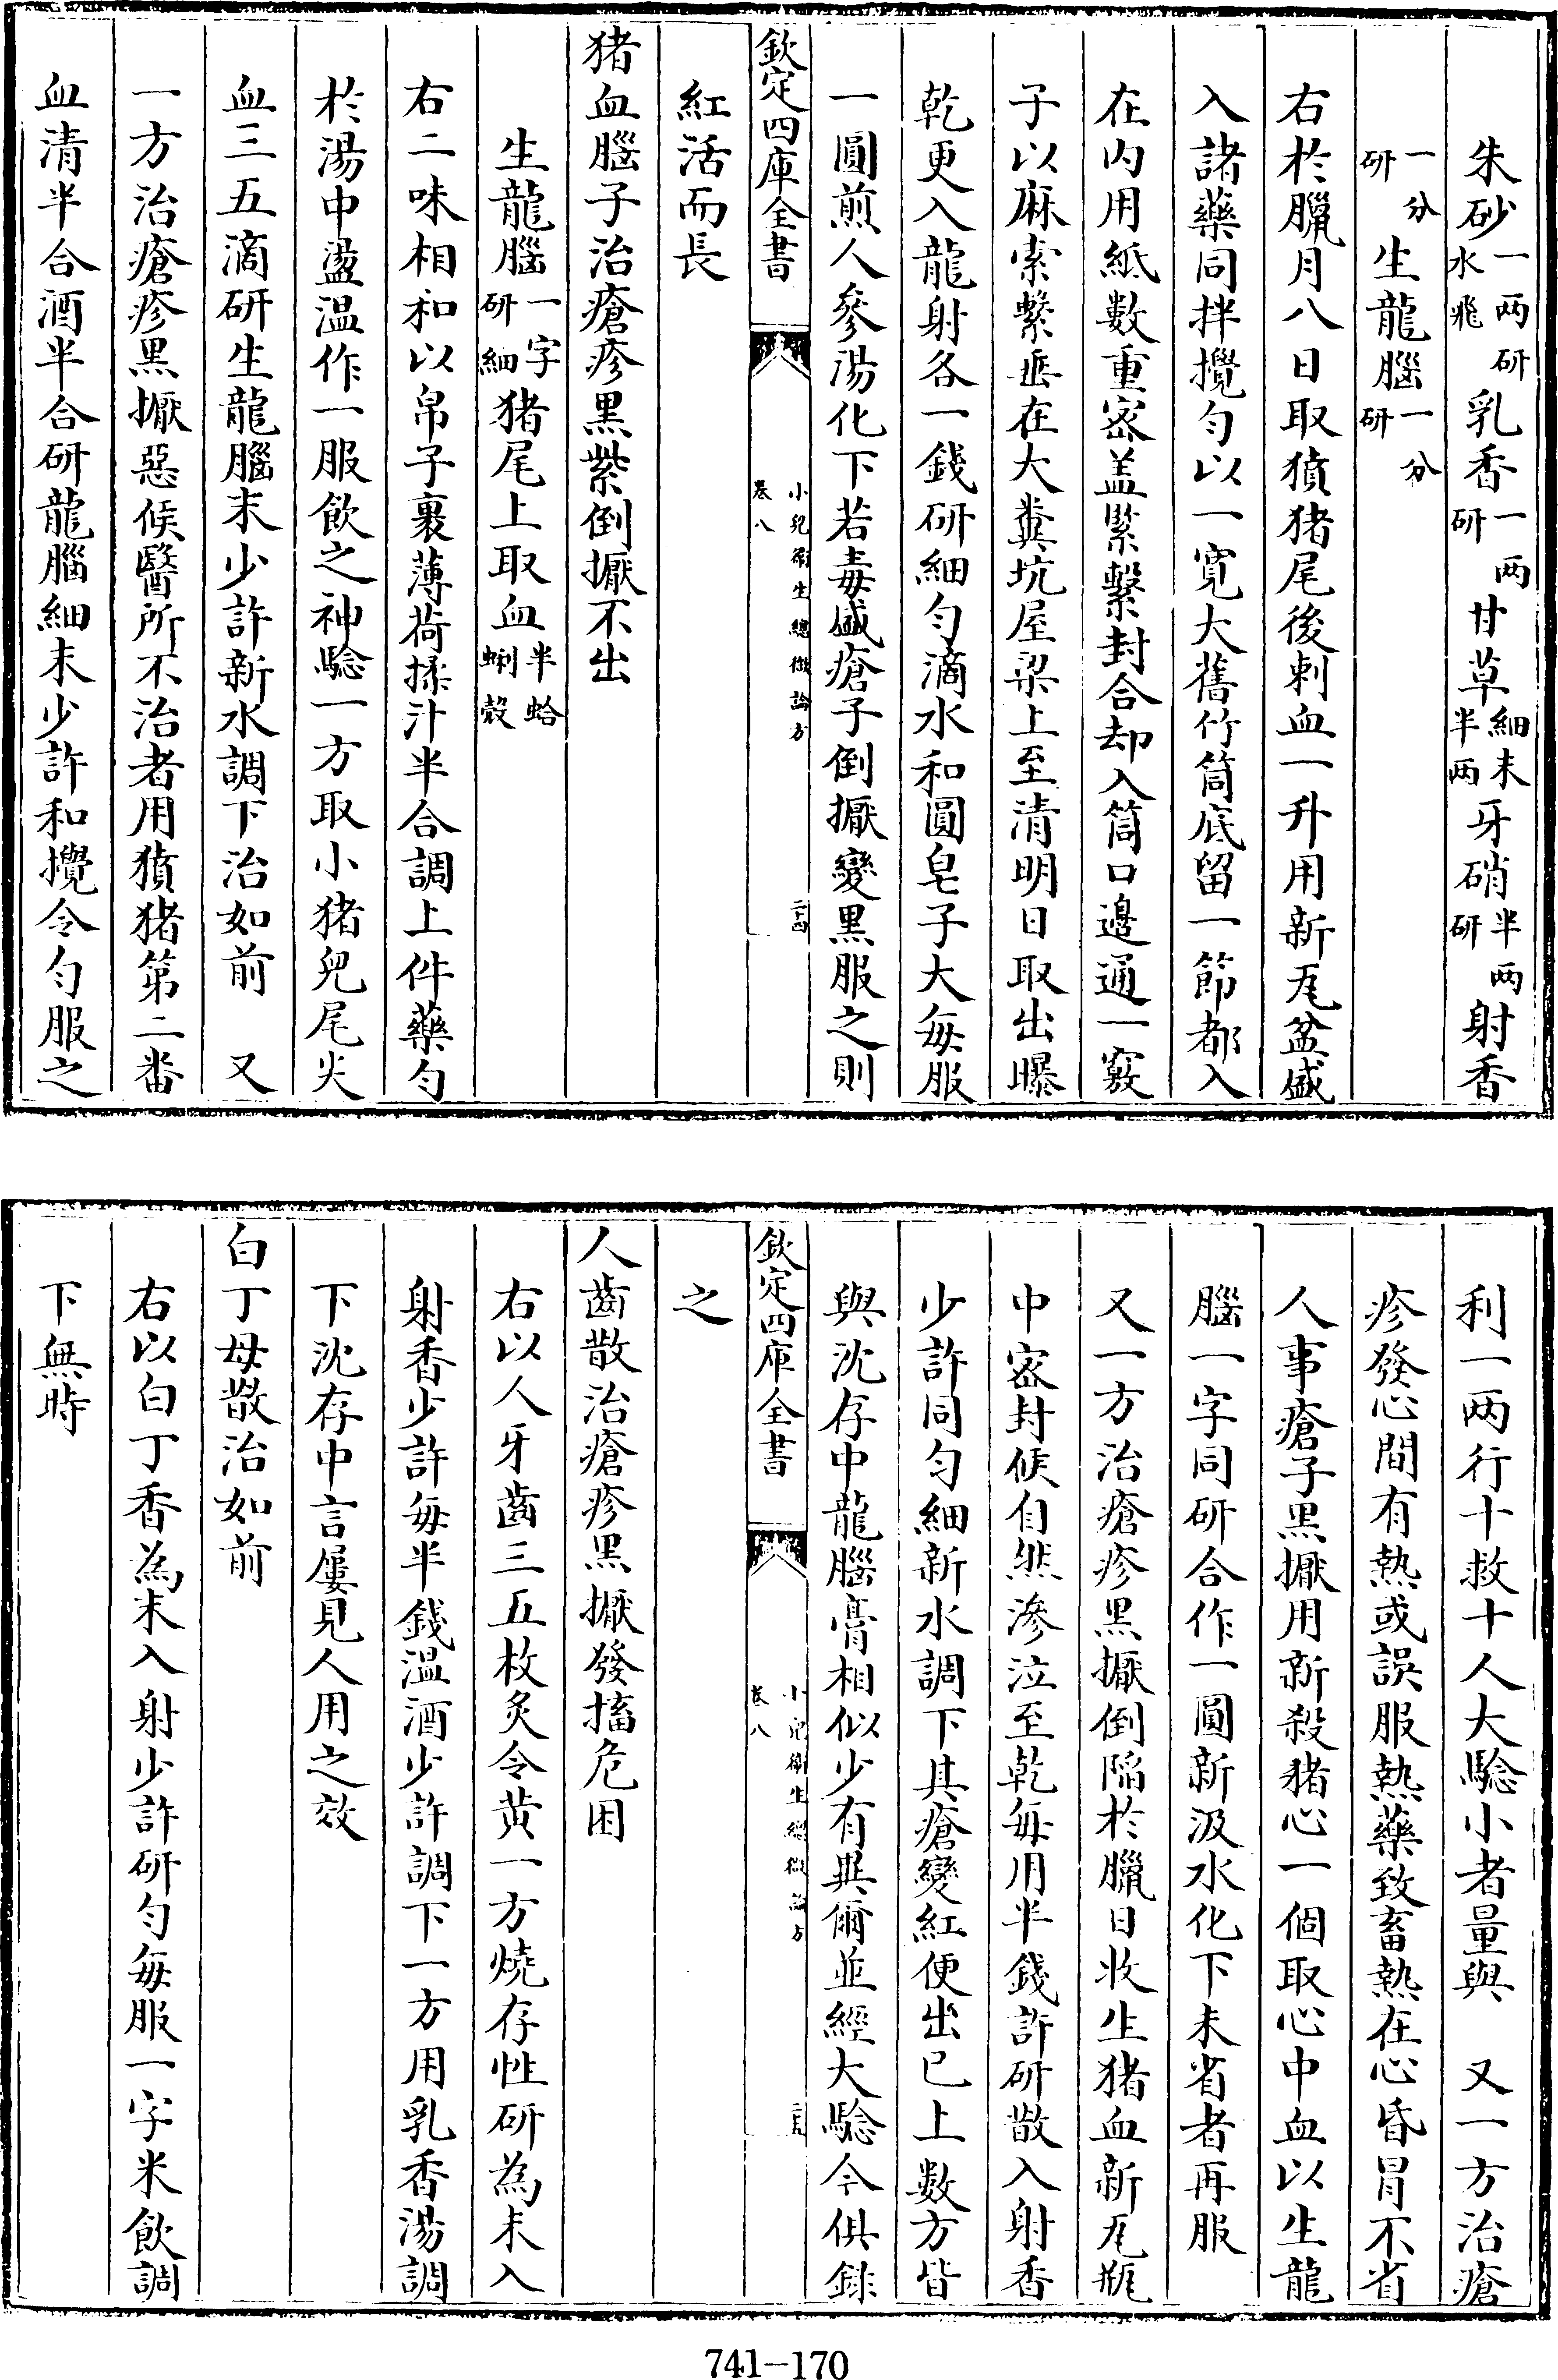 朱砂一两研水飛乳香一两研甘草細末半两牙硝半两研射香
一分研生龍腦一分研
右於臘月八日取豶猪尾後刺血一升用新瓦盆盛
入諸藥同拌攪匀以一寛大舊竹筒底留一節都入
在内用紙數重宻盖緊繫封合却入筒口邉通一竅
子以麻索繫垂在大糞坑屋梁上至清明日取出曝
乾更入龍射各一錢研細匀滴水和圓皂子大每服
一圓煎人參湯化下若毒盛瘡子倒擫變黒服之則
欽定四庫全書
小兒衞生總微論方
卷八
二十四
紅活而長
猪血腦子治瘡疹黒紫倒擫不出
生龍腦一字研細猪尾上取血半蛤蜊殼
右二味相和以帛子裹薄荷揉汁半合調上件藥匀
於湯中盪温作一服飲之神驗一方取小猪兒尾尖
血三五滴研生龍腦末少許新水調下治如前　又
一方治瘡疹黒擫惡候醫所不治者用豶猪第二番
血清半合酒半合研龍腦細末少許和攪令匀服之
利一两行十救十人大驗小者量與　又一方治瘡
疹發心間有熱或誤服熱藥致畜熱在心昏冒不省
人事瘡子黒擫用新殺猪心一個取心中血以生龍
腦一字同研合作一圓新汲水化下未省者再服
又一方治瘡疹黒擫倒陷於臘日收生猪血新瓦瓶
中宻封候自然滲泣至乾每用半錢許研散入射香
少許同匀細新水調下其瘡變紅便出已上數方皆
與沈存中龍腦膏相似少有異爾並經大驗今俱錄
欽定四庫全書
小兒衞生總微論方
卷八
二十五
之
人齒散治瘡疹黒擫發搐危困
右以人牙齒三五枚炙令黄一方燒存性研為末入
射香少許每半錢温酒少許調下一方用乳香湯調
下沈存中言屢見人用之效
白丁母散治如前
右以白丁香為末入射少許研匀每服一字米飲調
下無時
741-170